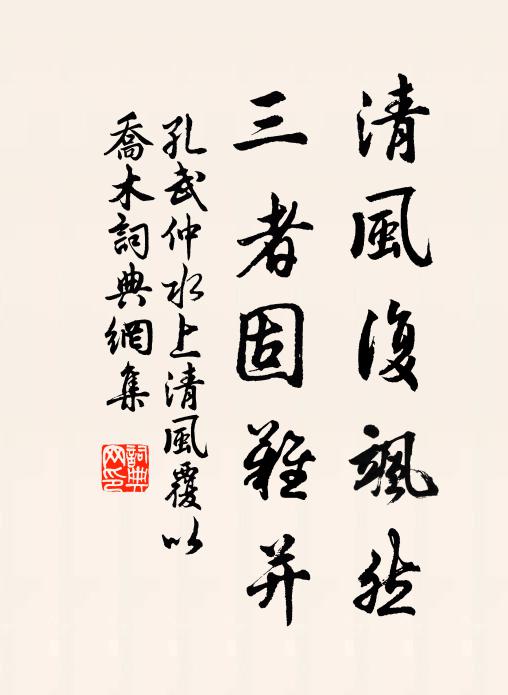 清風復颯然
三者固難并
孔武仲水上清風覆以
喬木詞典網集
詞典网印